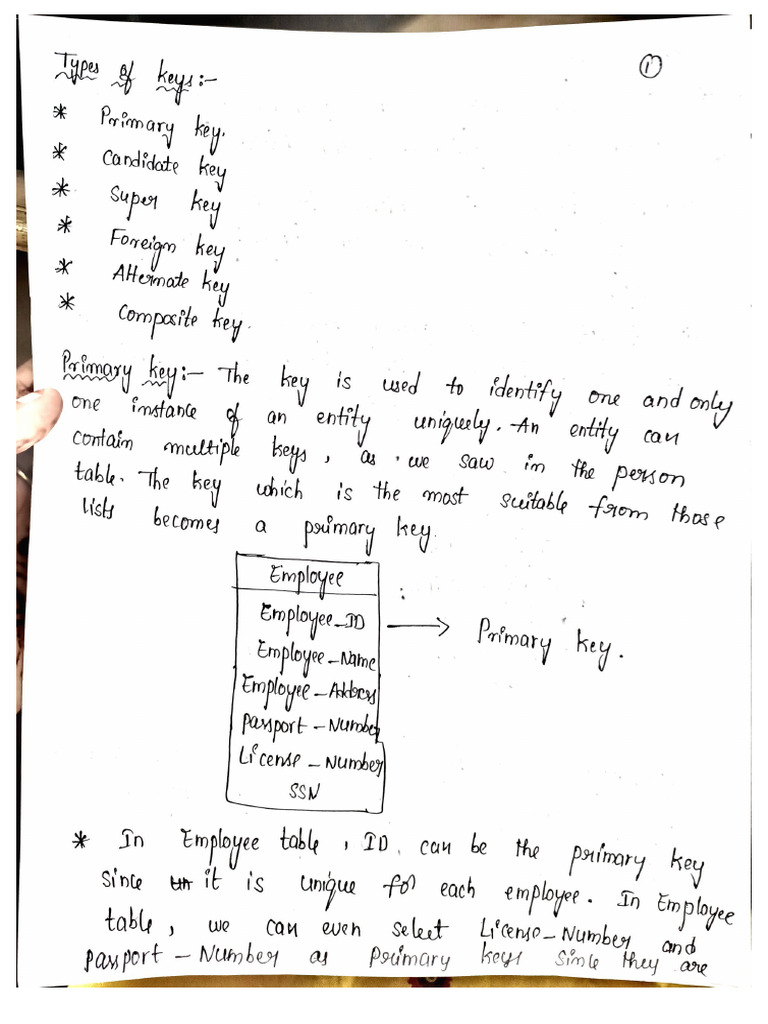 Types of keys:-
1
* Primary key.
* Candidate key
* Super key
* Foreign key
* Alternate key
* Composite key.
Primary key:- The key is used to identify one and only
one instance of an entity uniquely. An entity can
contain multiple keys, as we saw in the person
table. The key which is the most suitable from those
lists becomes a primary key.
Employee
Employee_ID → Primary key.
Employee_Name
Employee_Address
Passport_Number
License_Number
SSN
* In Employee table, ID can be the primary key
since it is unique for each employee. In Employee
table, we can even select License_Number and
passport_Number as Primary keys since they are